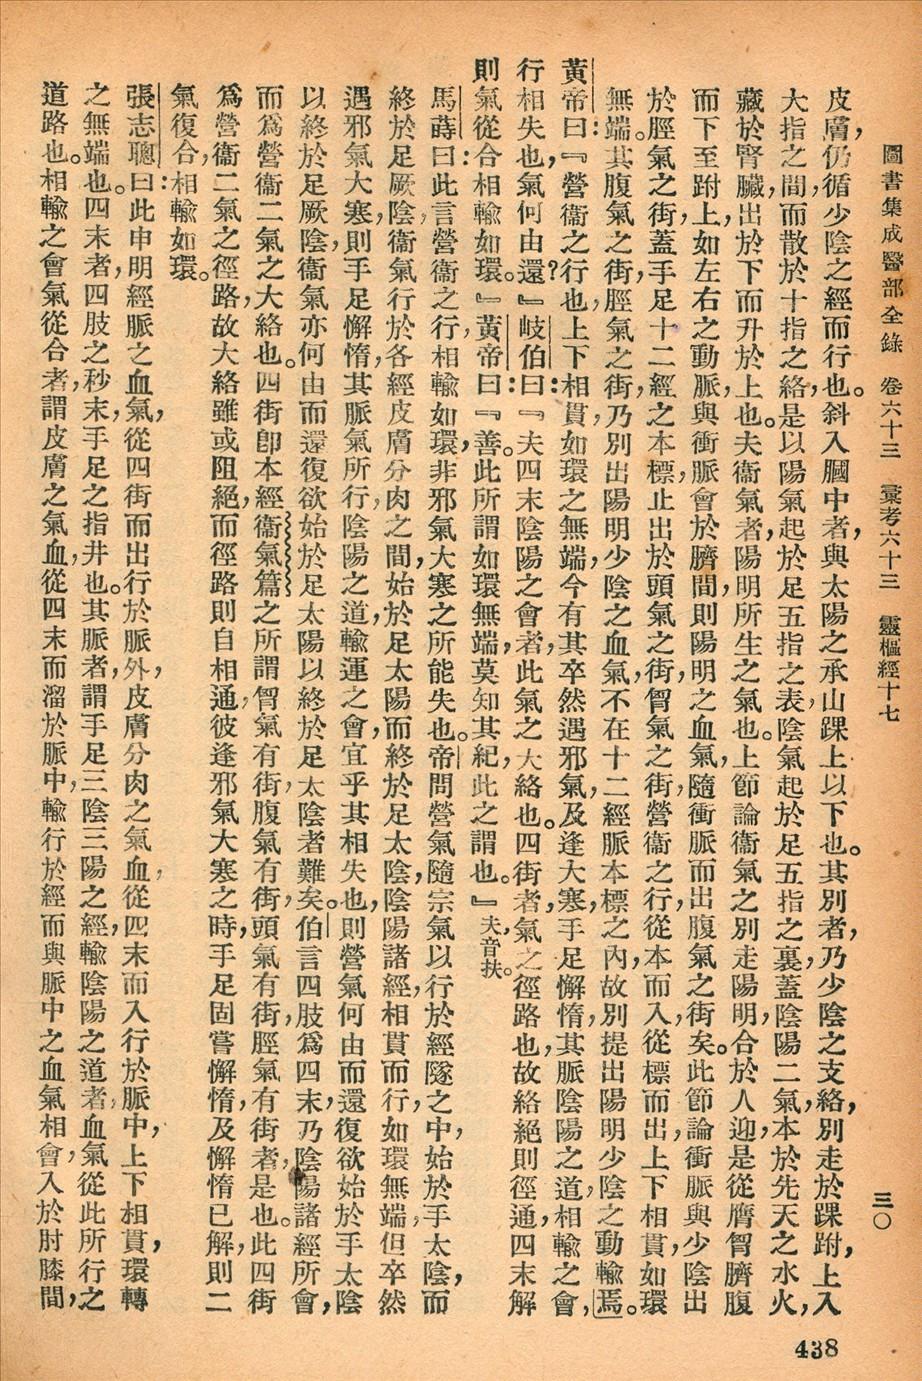 圖書集成醫部全錄　卷六十三　彙考六十三　靈樞經十七　三〇
皮膚，仍循少陰之經而行也。斜入膕中者，與太陽之承山踝上以下也。其別者，乃少陰之支絡，別走於踝跗，上入
大指之間，而散於十指之絡。是以陽氣起於足五指之表，陰氣起於足五指之裏，蓋陰陽二氣，本於先天之水火，
藏於腎臟，出於下而升於上也。夫衞氣者，陽明所生之氣也。上節論衞氣之別走陽明，合於人迎，是從膺胷臍腹
而下至跗上，如左右之動脈，與衝脈會於臍間，則陽明之血氣，隨衝脈而出腹氣之街矣。此節論衝脈與少陰出
於脛氣之街，蓋手足十二經之本標，止出於頭氣之街，胷氣之街，營衞之行，從本而入，從標而出，上下相貫，如環
無端。其腹氣之街，脛氣之街，乃別出陽明少陰之血氣，不在十二經脈本標之內，故別提出陽明少陰之動輸焉。
黃帝曰：『營衞之行也，上下相貫，如環之無端，今有其卒然遇邪氣，及逢大寒，手足懈惰，其脈陰陽之道，相輸之會，
行相失也，氣何由還？』岐伯曰：『夫四末陰陽之會者，此氣之大絡也。四街者，氣之徑路也，故絡絕則徑通，四末解
則氣從合，相輸如環。』黃帝曰：『善。此所謂如環無端，莫知其紀，此之謂也。』夫，音扶。
馬蒔曰：此言營衞之行，相輸如環，非邪氣大寒之所能失也。帝問營氣隨宗氣以行於經隧之中，始於手太陰，而
終於足厥陰，衞氣行於各經皮膚分肉之間，始於足太陽，而終於足太陰，陰陽諸經，相貫而行，如環無端，但卒然
遇邪氣大寒，則手足懈惰，其脈氣所行，陰陽之道，輸運之會，宜乎其相失也，則營氣何由而還復欲始於手太陰
以終於足厥陰，衞氣亦何由而還復欲始於足太陽以終於足太陰者難矣。伯言四肢爲四末，乃陰陽諸經所會，
而爲營衞二氣之大絡也。四街卽本經衞氣篇之所謂胷氣有街，腹氣有街，頭氣有街，脛氣有街者，是也。此四街
爲營衞二氣之徑路，故大絡雖或阻絕，而徑路則自相通，彼逢邪氣大寒之時，手足固嘗懈惰，及懈惰已解，則二
氣復合，相輸如環。
張志聰曰：此申明經脈之血氣，從四街而出行於脈外，皮膚分肉之氣血，從四末而入行於脈中，上下相貫，環轉
之無端也。四末者，四肢之秒末，手足之指井也。其脈者，謂手足三陰三陽之經，輸陰陽之道者，血氣從此所行之
道路也。相輸之會，氣從合者，謂皮膚之氣血，從四末而溜於脈中，輸行於經，而與脈中之血氣相會，入於肘膝間，
438